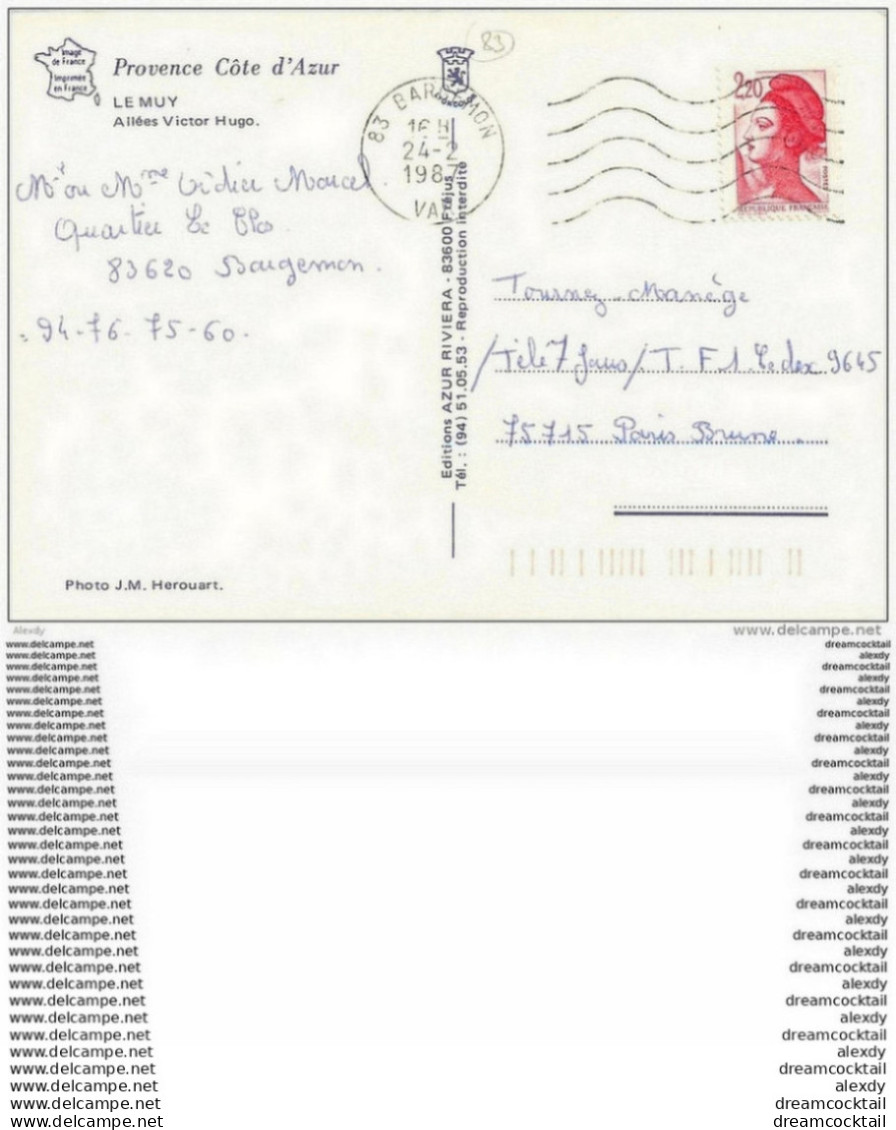 Image
de France
Imprimée
en France
Provence Côte d'Azur
LE MUY
Allées Victor Hugo.
83
83 BARGEMON
16H
24-2
1987
VAR
2,20
POSTES
REPUBLIQUE FRANÇAISE
Mr ou Mme Védier Marcel.
Quartier Le Clos
83620 Bargemon.
94-76-75-60.
Editions AZUR RIVIERA - 83600 Fréjus
Tél. : (94) 51.05.53 - Reproduction interdite
Tournez Manège
/Télé 7 Jours/T.F.1 Cedex 9645
75715 Paris Brune
Photo J.M. Herouart.
Alexdy
www.delcampe.net
www.delcampe.net dreamcocktail
www.delcampe.net alexdy
www.delcampe.net dreamcocktail
www.delcampe.net alexdy
www.delcampe.net dreamcocktail
www.delcampe.net alexdy
www.delcampe.net dreamcocktail
www.delcampe.net alexdy
www.delcampe.net dreamcocktail
www.delcampe.net alexdy
www.delcampe.net dreamcocktail
www.delcampe.net alexdy
www.delcampe.net dreamcocktail
www.delcampe.net alexdy
www.delcampe.net dreamcocktail
www.delcampe.net alexdy
www.delcampe.net dreamcocktail
www.delcampe.net alexdy
www.delcampe.net dreamcocktail
www.delcampe.net alexdy
www.delcampe.net dreamcocktail
www.delcampe.net alexdy
www.delcampe.net dreamcocktail
www.delcampe.net alexdy
www.delcampe.net dreamcocktail
www.delcampe.net alexdy
www.delcampe.net dreamcocktail
www.delcampe.net alexdy
www.delcampe.net dreamcocktail
www.delcampe.net alexdy
www.delcampe.net dreamcocktail
www.delcampe.net dreamcocktail